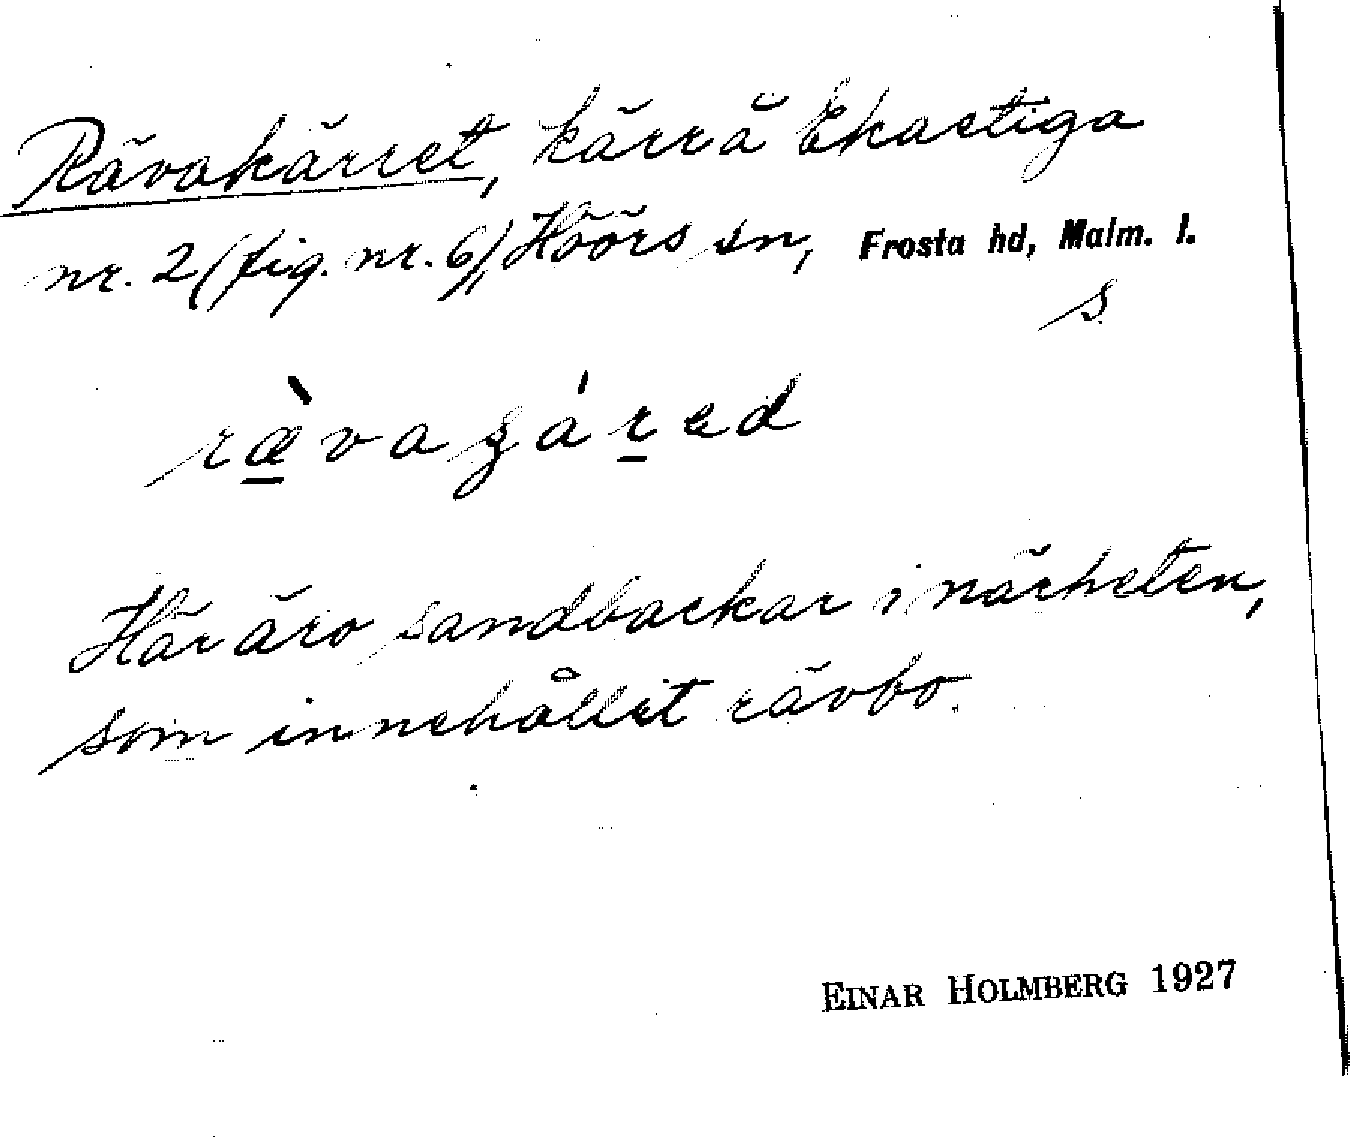 Rävakärret, kärr å Ekastiga
nr. 2 (fig. nr. 6), Höörs sn, Frosta hd, Malm. l.
s
ræ̀vagáred
Här äro sandbackar i närheten,
som innehållit rävbo.
EINAR HOLMBERG 1927